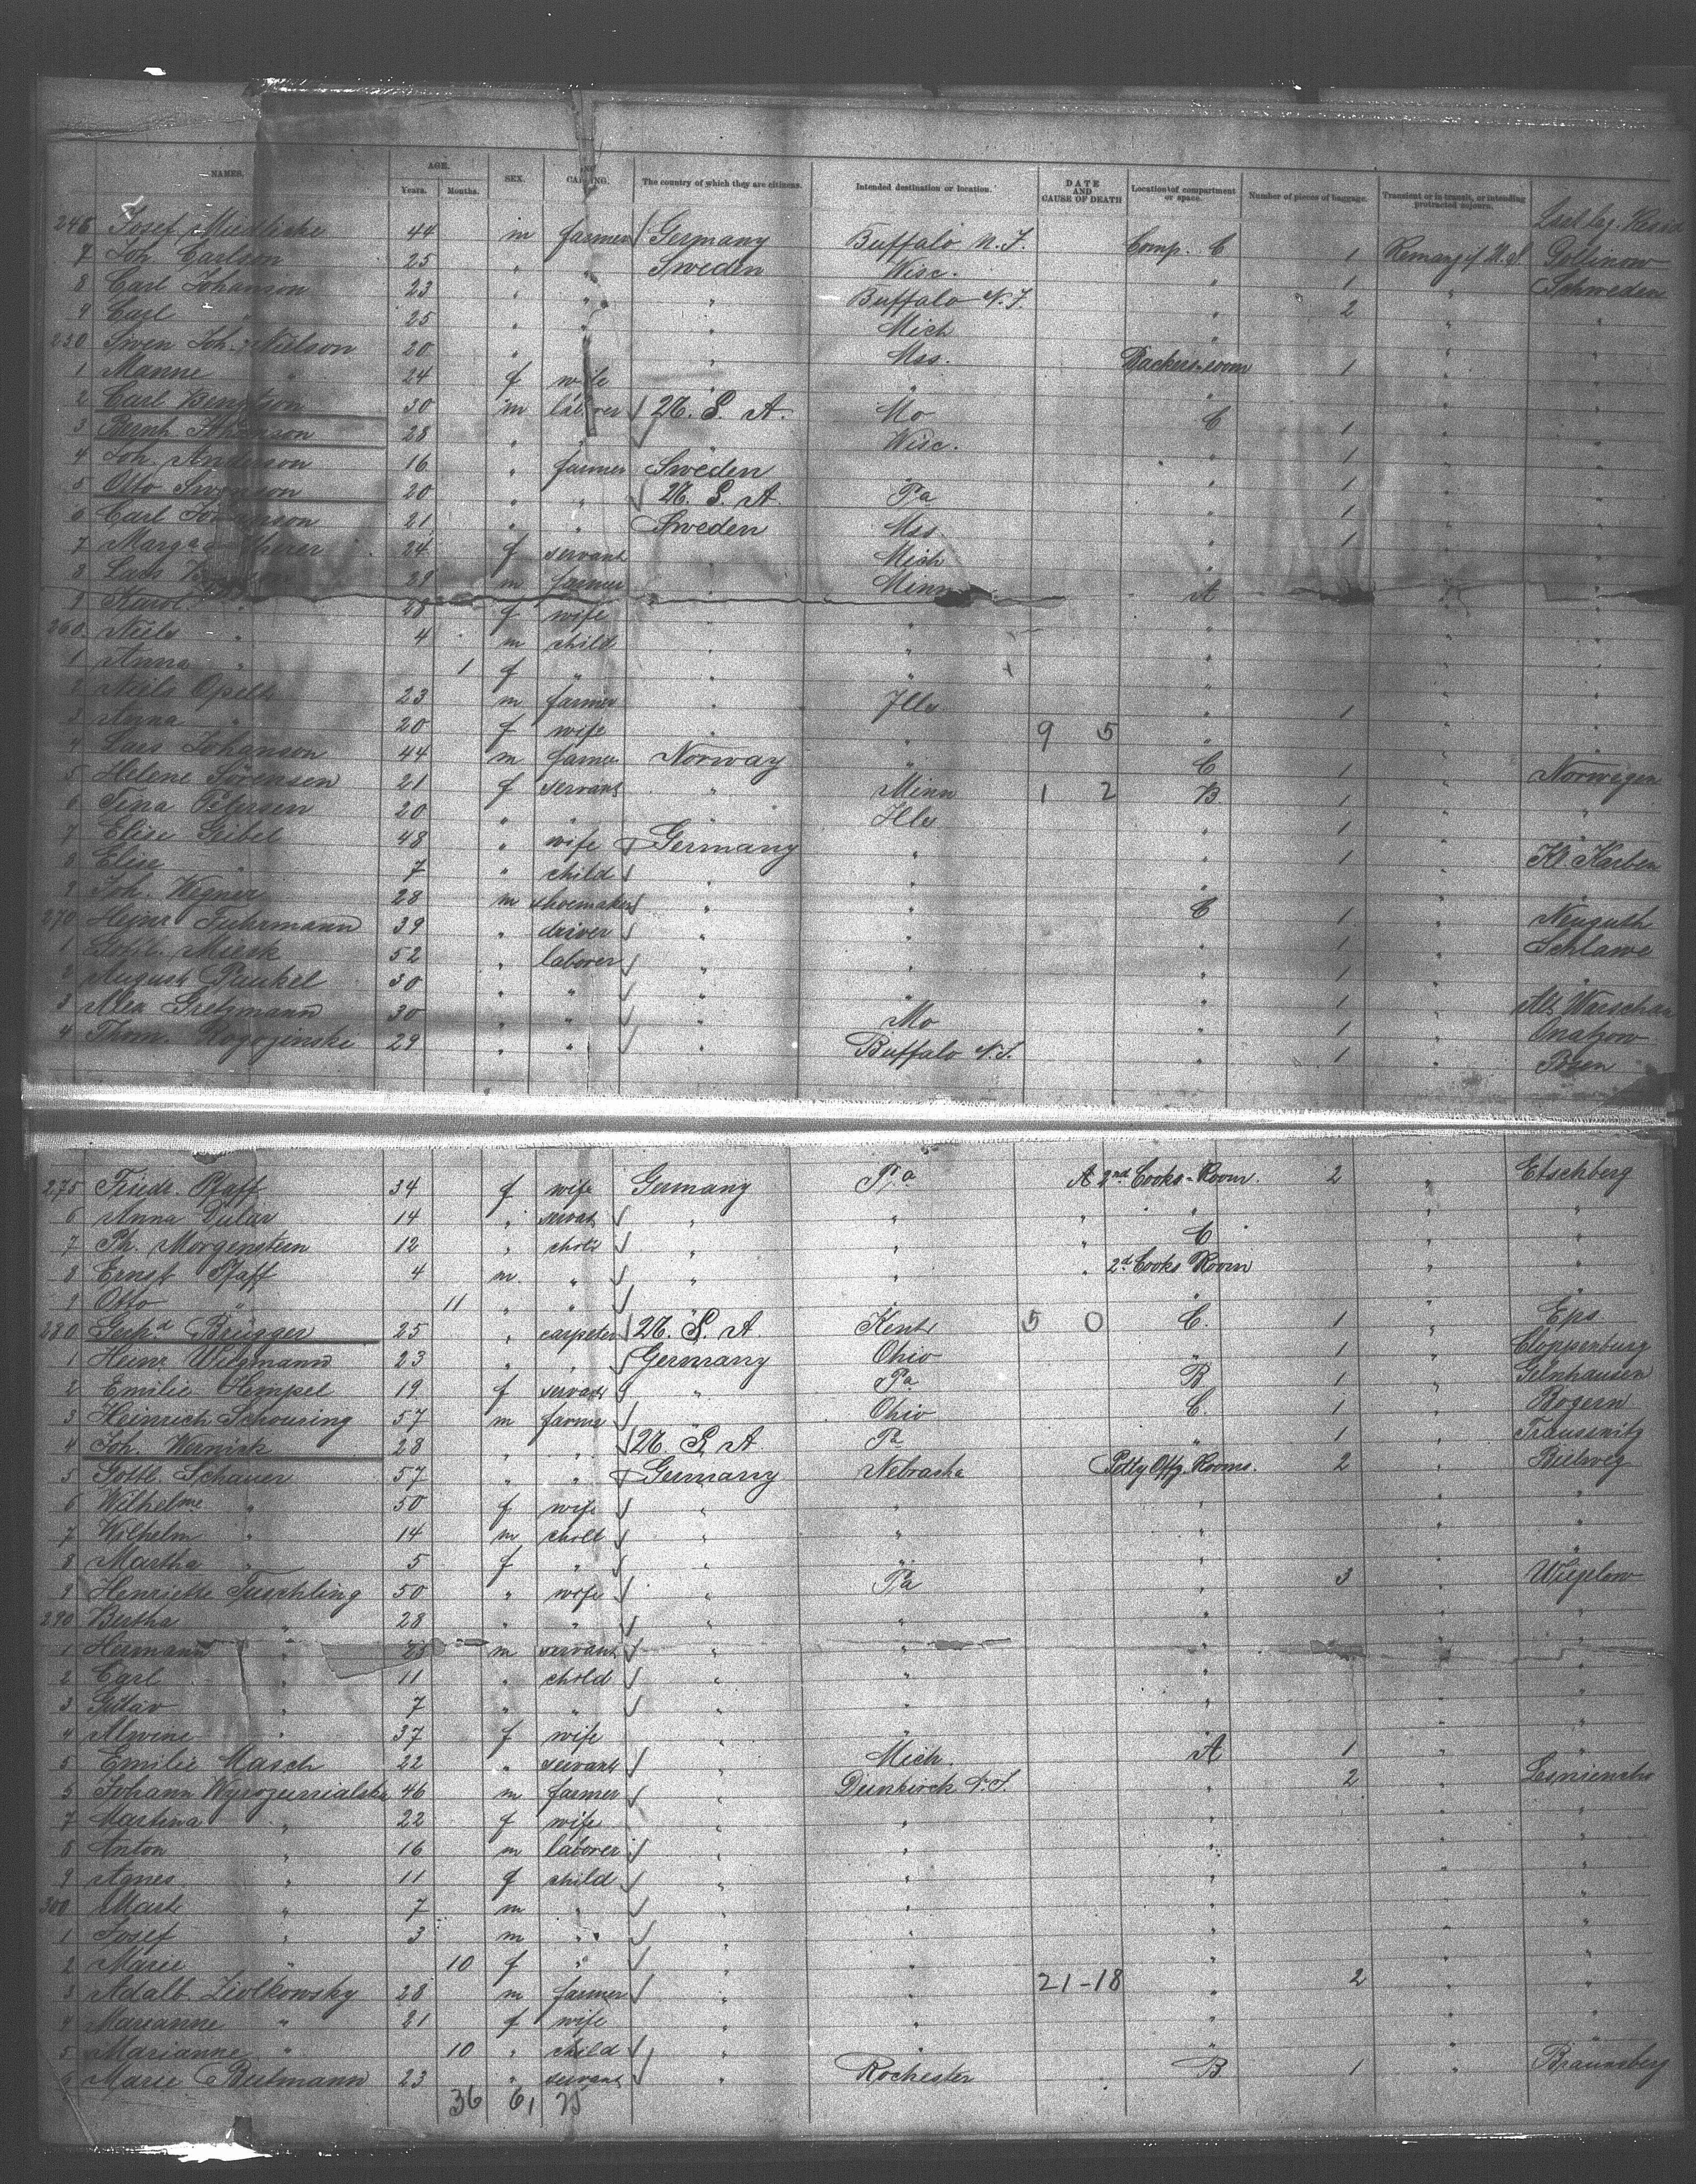 NAMES. AGE. Years. Months. SEX. CALLING. The country of which they are citizens. Intended destination or location. DATE AND CAUSE OF DEATH Location of compartment or space. Number of pieces of baggage. Transient or in transit, or intending protracted sojourn.
246 Josef 44 m farmer Germany Buffalo N.Y. Comp. C 1 Gollnow
7 Joh. Carlson 25 " " Sweden Wisc. " 1 " Schweden
8 Carl Johanson 23 " " " Buffalo N.Y. " 2 " "
9 Carl " 25 " " " Mich " " "
250 Swen Joh. Nielson 20 " " Mss. Backers room 1 " "
1 Manne " 24 f wife " " " " "
2 Carl Bengtson 30 m laborer U. S. A. Mo C 1 " "
3 Bernh. Johanson 28 " " " Wisc. " 1 " "
4 Joh. Anderson 16 " farmer Sweden " 1 " "
5 Otto Swenson 20 " " U. S. A. Pa " 1 " "
6 Carl Johanson 21 " " Sweden Mss. " 1 " "
7 24 f servant " Mich " " "
8 Lars 29 m farmer " Minn A " "
9 Karol. " 28 f wife " " " " "
260 Niels " 4 m child " " " " "
1 Anna " 1 f " " " " " "
2 Niels Opelt 23 m farmer " Ills " 1 " "
3 Anna " 20 f wife " " 9 5 " " "
4 Lars Johanson 44 m farmer Norway " C 1 " Norwegen
5 Helene Sörensen 21 f servant " Minn 1 2 B 1 " "
6 Tina Petersen 20 " " " Ills " 1 " "
7 Elise Geibel 48 " wife Germany " " 1 " Kl. Karben
8 Elise " 7 " child " " " " "
9 Joh. Wegner 28 m shoemaker " " C 1 " Neuguth
270 Heinr Fuhrmann 39 " driver " " " 1 " Schlawe
1 Gottl. Mieck 52 " laborer " " " 1 " "
2 August Paukel 30 " " " " " 1 " Alt Warschau
3 Alex Gretzmann 30 " " " Mo " 1 "
4 Thom. Rogozinske 29 " " " Buffalo N.Y. " 1 " Posen
275 Friedr. Pfaff 34 f wife Germany Pa A 2nd Cooks-Room. 2 " Etschberg
6 Anna Dular 14 " servant " " " " " "
7 Ph. Morgenstern 12 " child " " " C " "
8 Ernst Pfaff 4 m " " " " 2d Cooks Room " "
9 Otto " 11 " " " " " " "
280 Gerh.d Brügger 25 " carpeter U. S. A. Kent 5 0 C. 1 " Eps
1 Heinr Wilgmann 23 " " Germany Ohio " 1 " Cloppenburg
2 Emilie Hempel 19 f servant " Pa B 1 " Gelnhausen
3 Heinrich Schouring 57 m farmer " Ohio C. 1 " Bogern
4 Joh. Wernick 28 " " U. S. A Pa " 1 " Traussnitz
5 Gottl. Schauer 57 " " Germany Nebraska Petty Offz. Rooms. 2 "
6 Wilhelme " 50 f wife " " " " "
7 Wilhelm " 14 m child " " " " "
8 Martha " 5 f " " " " " "
9 Henriette Tuschling 50 " wife " Pa " 3 "
290 Bertha " 28 " " " " " " "
1 Hermann " 25 m servant " " " " "
2 Carl " 11 " child " " " " "
3 Gustav " 7 " " " " " " "
4 Alwine " 37 f wife " " " " "
5 Emilie Masch 22 " servant " Mich. A 1 " "
5 Johann 46 m farmer " Dunkirck N.Y. " 2 "
7 Martina " 22 f wife " " " " "
8 Anton " 16 m laborer " " " " "
9 Agnes " 11 f child " " " " "
300 " 7 m " " " " " "
1 Josef " 3 m " " " " " "
2 Marie " 10 f " " " " " "
3 Adalb. Ziolkowsky 28 m farmer " " 21-18 " 2 " "
4 Marianne " 21 f wife " " " " "
5 Marianne " 10 " child " " " " "
6 Marie 23 " servant " Rochester B 1 " Braunsberg
36 61 75